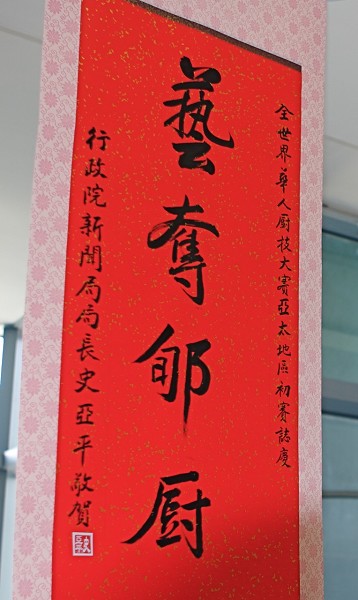 全世界華人厨技大賽亞太地區初賽誌慶
藝奪郇厨
行政院新聞局局長史亞平敬賀